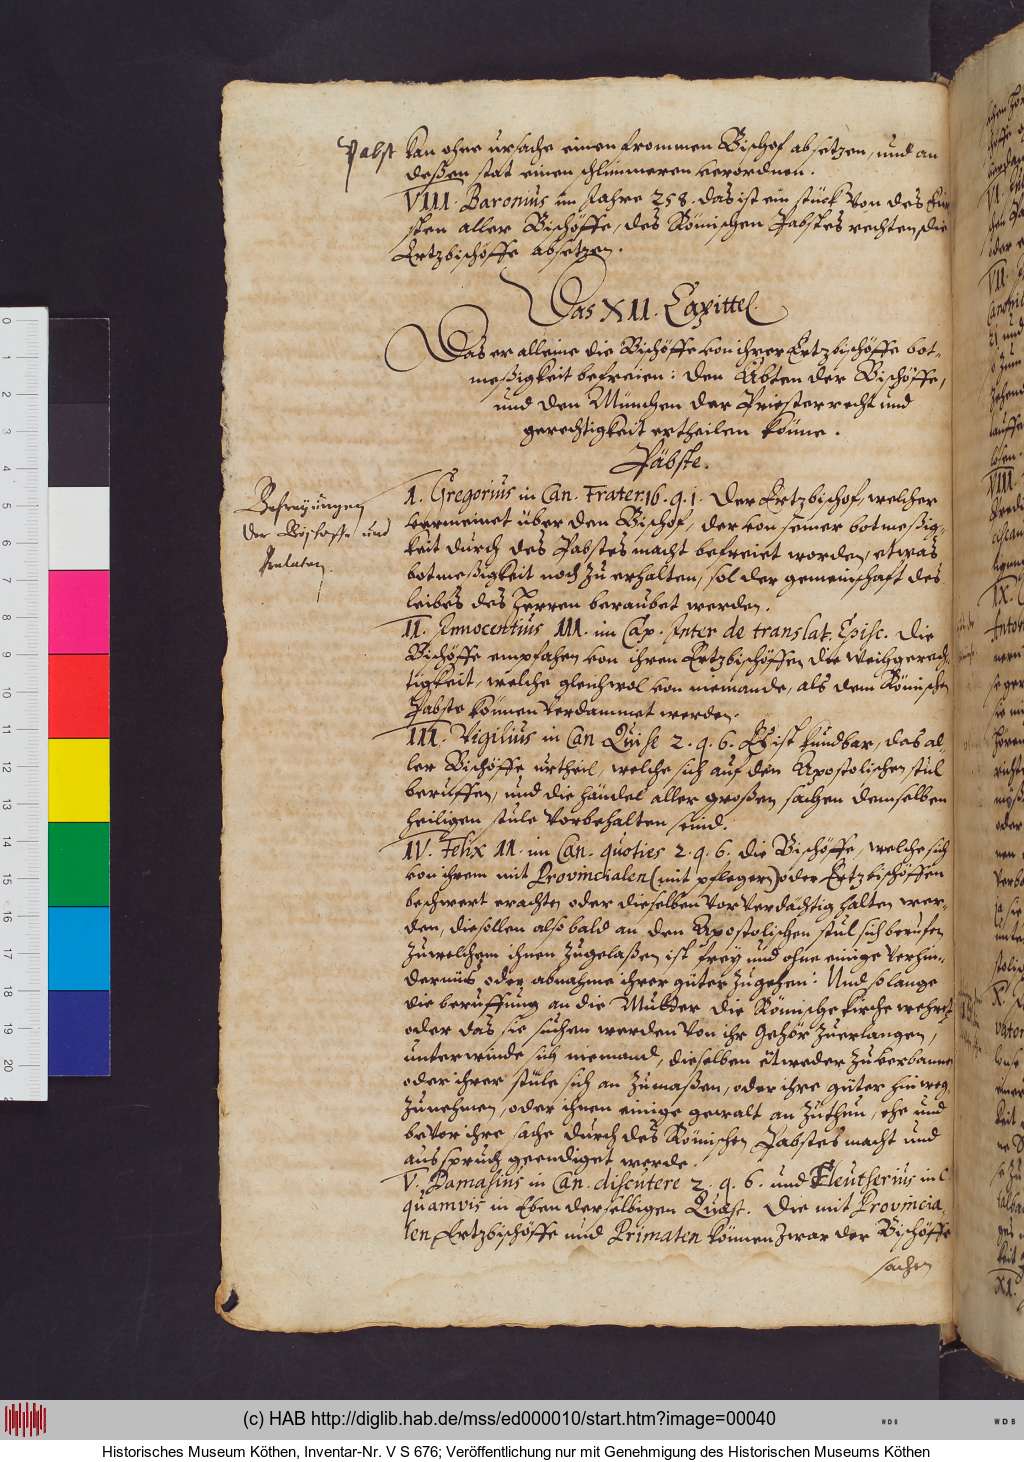 Pabst kan ohne ursache einen frommen Bischof absetzen, und an
deßen stat einen schlimmeren verordnen.
VIII. Baronius im Jahre 258. das ist ein stück von des Für
sten aller Bischöffe, des Römischen Pabstes rechten, die
Ertzbischöffe absetzen.
Das XII. Capittel.
Das er alleine die Bischöffe von ihrer Ertzbischöffe bot-
meßigkeit befreien: den Äbten der Bischöffe,
und den München der Priester recht und
gerechtigkeit ertheilen könne.
Päbste.
Befreyungen
der Bischoffe und
Praelaten.
I. Gregorius in Can. Frater. 16. q. 1. Der Ertzbischof, welcher
vermeinet über den Bischof, der von seiner botmeßig-
keit durch des Pabstes macht befreiet worden, etwas
botmeßigkeit noch zu erhalten, sol der gemeinschaft des
leibes des Herren beraubet werden.
II. Innocentius III. im Cap. Inter de translat. Episc. Die
Bischöffe empfahen von ihren Ertzbischöffen die Weihgerech-
tigkeit, welche gleichwol von niemande, als dem Römischen
Pabste können verdammet werden.
III. Vigilius in Can Qui se 2. q. 6. Es ist kundbar, das al-
ler Bischöffe urtheil, welche sich auf den Apostolischen stul
beruffen, und die händel aller großen sachen demselben
heiligen stule vorbehalten sind.
IV. Felix II. im Can. quoties 2. q. 6. die Bischöffe, welche sich
von ihrem mit Provincialen (mit pflegern) oder Ertzbischöffen
beschwert erachten oder dieselben vor verdächtig halten wer-
den, die sollen also bald an den Apostolischen stul sich berufen
zu welchem ihnen zugelaßen ist frey und ohne einige verhin-
dernüs oder abnahme ihrer güter zugehen: Und so lange
die beruffung an die Mutter die Römische kirche wehret
oder das sie suchen werden von ihr Gehör zuerlangen,
unterwinde sich niemand, dieselben etweder zu verbannen
oder ihrer stüle sich an zumaßen, oder ihre güter hinweg
zunehmen, oder ihnen einige gewalt an zuthun, ehe und
bevor ihre sache durch des Römischen Pabstes macht und
ausspruch geendiget werde.
V. Damasius in Can. discutere 2. q. 6. und Eleutherius in C.
quamvis in Eben derselbigen Quaest. Die mit Provincia-
len Ertzbischöffe und Primaten können zwar der Bischöffe
sachen
(c) HAB http://diglib.hab.de/mss/ed000010/start.htm?image=00040
Historisches Museum Köthen, Inventar-Nr. V S 676; Veröffentlichung nur mit Genehmigung des Historischen Museums Köthen